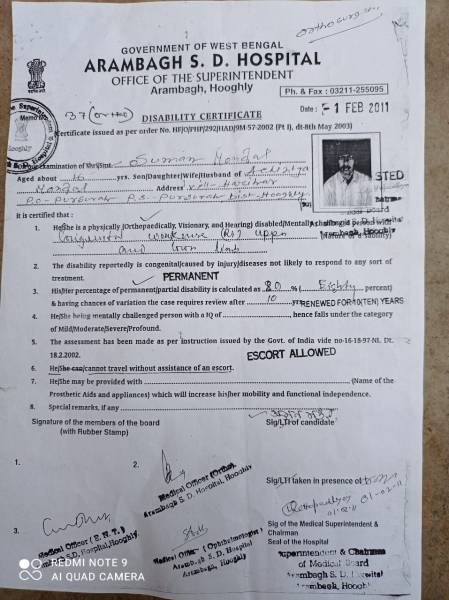 Orthosurgeon
GOVERNMENT OF WEST BENGAL
ARAMBAGH S. D. HOSPITAL
OFFICE OF THE SUPERINTENDENT
Arambagh, Hooghly
Ph. & Fax : 03211-255095
Memo
37 (ortho)
Date : -1 FEB 2011
DISABILITY CERTIFICATE
(Certificate issued as per order No. HF/O/PHP/292/HAD/9M-57-2002 (Pt I), dt-8th May 2003)
examination of Shri/Smt Suman Mondal
Aged about 16 yrs. Son/Daughter/Wife/Husband of
Mondal Address vill-
P.O- Pursurah P.S- Pursurah Dist- Hooghly
STED
It is certified that :
1. He/She is a physically (Orthopaedically, Visionary, and Hearing) disabled/Mentally
Congenital weakness (Rt) upper
and lower limb
2. The disability reportedly is congenital/caused by injury/diseases not likely to respond to any sort of
treatment.
PERMANENT
3. His/Her percentage of permanent/partial disability is calculated as 80 % ( Eighty percent)
& having chances of variation the case requires review after 10 yrs RENEWED FOR 10(TEN) YEARS
4. He/She being mentally challenged person with a IQ of hence falls under the category
of Mild/Moderate/Severe/Profound.
5. The assessment has been made as per instruction issued by the Govt. of India vide no-16-18-97-NI. Dt.
18.2.2002.
ESCORT ALLOWED
6. He/She can/cannot travel without assistance of an escort.
7. He/She may be provided with (Name of the
Prosthetic Aids and appliances) which will increase his/her mobility and functional independence.
8. Special remarks, if any
Signature of the members of the board
(with Rubber Stamp)
Sig/LTI of candidate
1.
2.
Medical Officer (Ortho)
Arambagh S. D. Hospital, Hooghly
Sig/LTI taken in presence of
01-02-11
3.
Medical Officer (E.N.T.)
S.D. Hospital, Hooghly
Medical Officer (Ophthalmologist)
Arambagh S. D. Hospital
Arambagh, Hooghly
Sig of the Medical Superintendent &
Chairman
Seal of the Hospital
Superintendent & Chairman
of Medical Board
Arambagh S. D. Hospital
Arambagh, Hooghly
REDMI NOTE 9
AI QUAD CAMERA